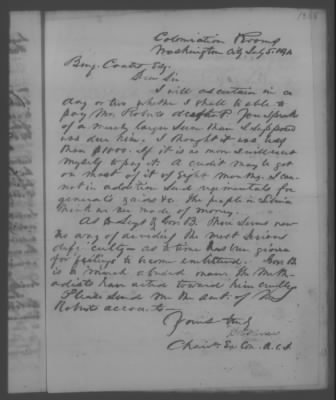 Colonization Rooms
Washington City July 5. 18
Benj. Coates Esq.
Dear Sir
I will ascertain in a
day or two, whether I shall be able to
pay Mr. Roberts draft. You speak
of a much larger sum than I supposed
was due him. I thought it was less
than $1000. If it is so now I will
myself to pay it. A credit may be got
on most of it of eight months. I can
not in addition send regimentals for
generals guards &c the people in Liberia
think we are made of money.
As to and Gov. B. There seems now
no way of deciding the most serious
difficulty as to time has been given
for feelings to become embittered. Gov. B
is a much abused man the Meth
odists have acted toward him cruelly
Please send me the amt. of Mr
Roberts account
Yours truly
Chairn Ex Com. A.C.S